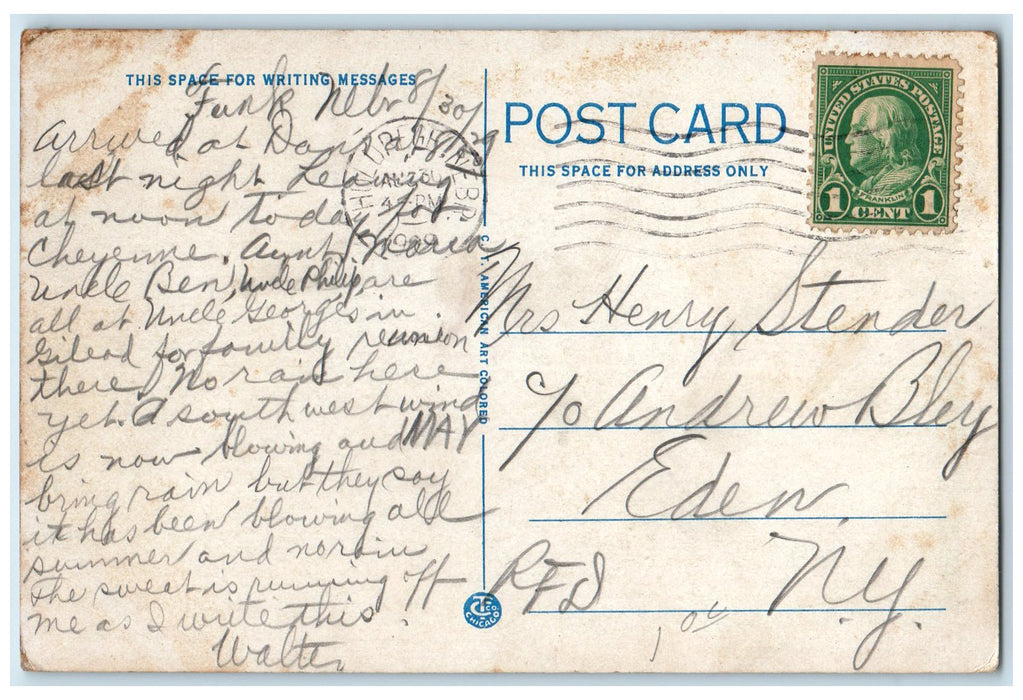 THIS SPACE FOR WRITING MESSAGES
Funk Nebr 8/30/29
Arrived at Dan's at
last night Leaving
at noon today for
Cheyenne. Aunt Maria
Uncle Ben, Uncle Philip, are
all at Uncle Georges in
Gilead for family reunion
there. No rain here
yet. A southwest wind
is now blowing and MAY
bring rain but they say
it has been blowing all
summer and no rain
The sweat is running off
me as I write this.
Walter
C. T. AMERICAN ART COLORED
CT CO
CHICAGO
NEBR.
4 PM
1929
POST CARD
THIS SPACE FOR ADDRESS ONLY
UNITED STATES POSTAGE
FRANKLIN
1 CENT 1
Mrs Henry Stender
c/o Andrew Bley
Eden,
RFD N.Y.
1 00